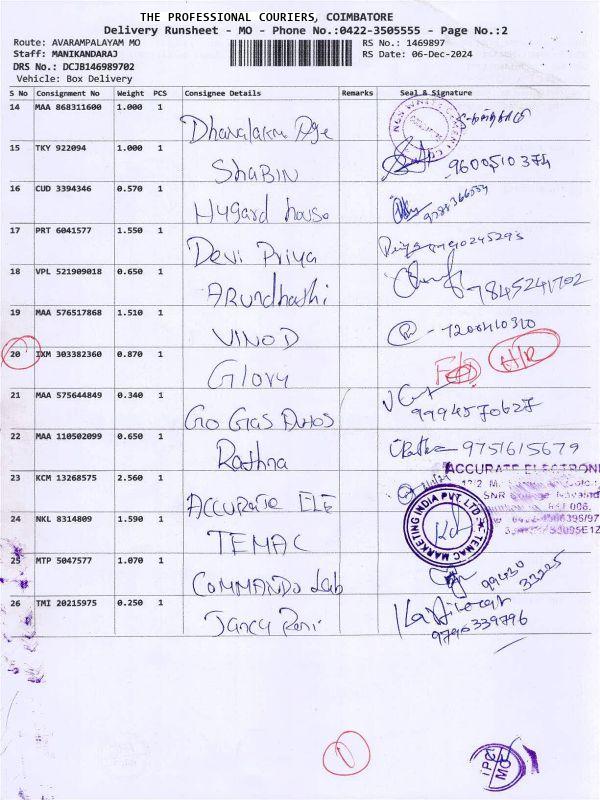 THE PROFESSIONAL COURIERS, COIMBATORE
Delivery Runsheet - MO - Phone No.:0422-3505555 - Page No.:2
Route: AVARAMPALAYAM MO RS No.: 1469897
Staff: MANIKANDARAJ RS Date: 06-Dec-2024
DRS No.: DCJB146989702
Vehicle: Box Delivery
S No Consignment No Weight PCS Consignee Details Remarks Seal & Signature
14 MAA 868311600 1.000 1
Dhanalakmi Age
15 TKY 922094 1.000 1
ShaBIN 9600510374
16 CUD 3394346 0.570 1
Hygard house
17 PRT 6041577 1.550 1
Devi Priya
18 VPL 521909018 0.650 1
ARundhathi 7845241702
19 MAA 576517868 1.510 1
VINOD - 7200410310
20 IXM 303382360 0.870 1
Glory
21 MAA 575644849 0.340 1
Go Gas Autos 9994570627
22 MAA 110502099 0.650 1
Rathna Rathna 9751615679
23 KCM 13268575 2.560 1
ACCURATE ELE
ACCURATE ELECTRON
24 NKL 8314809 1.590 1
TEMAC
TEMAC MARKETING INDIA PVT. LTD
25 MTP 5047577 1.070 1
COMMANDO Lab 99430 33225
26 TMI 20215975 0.250 1
Jancy Rani
9790339796